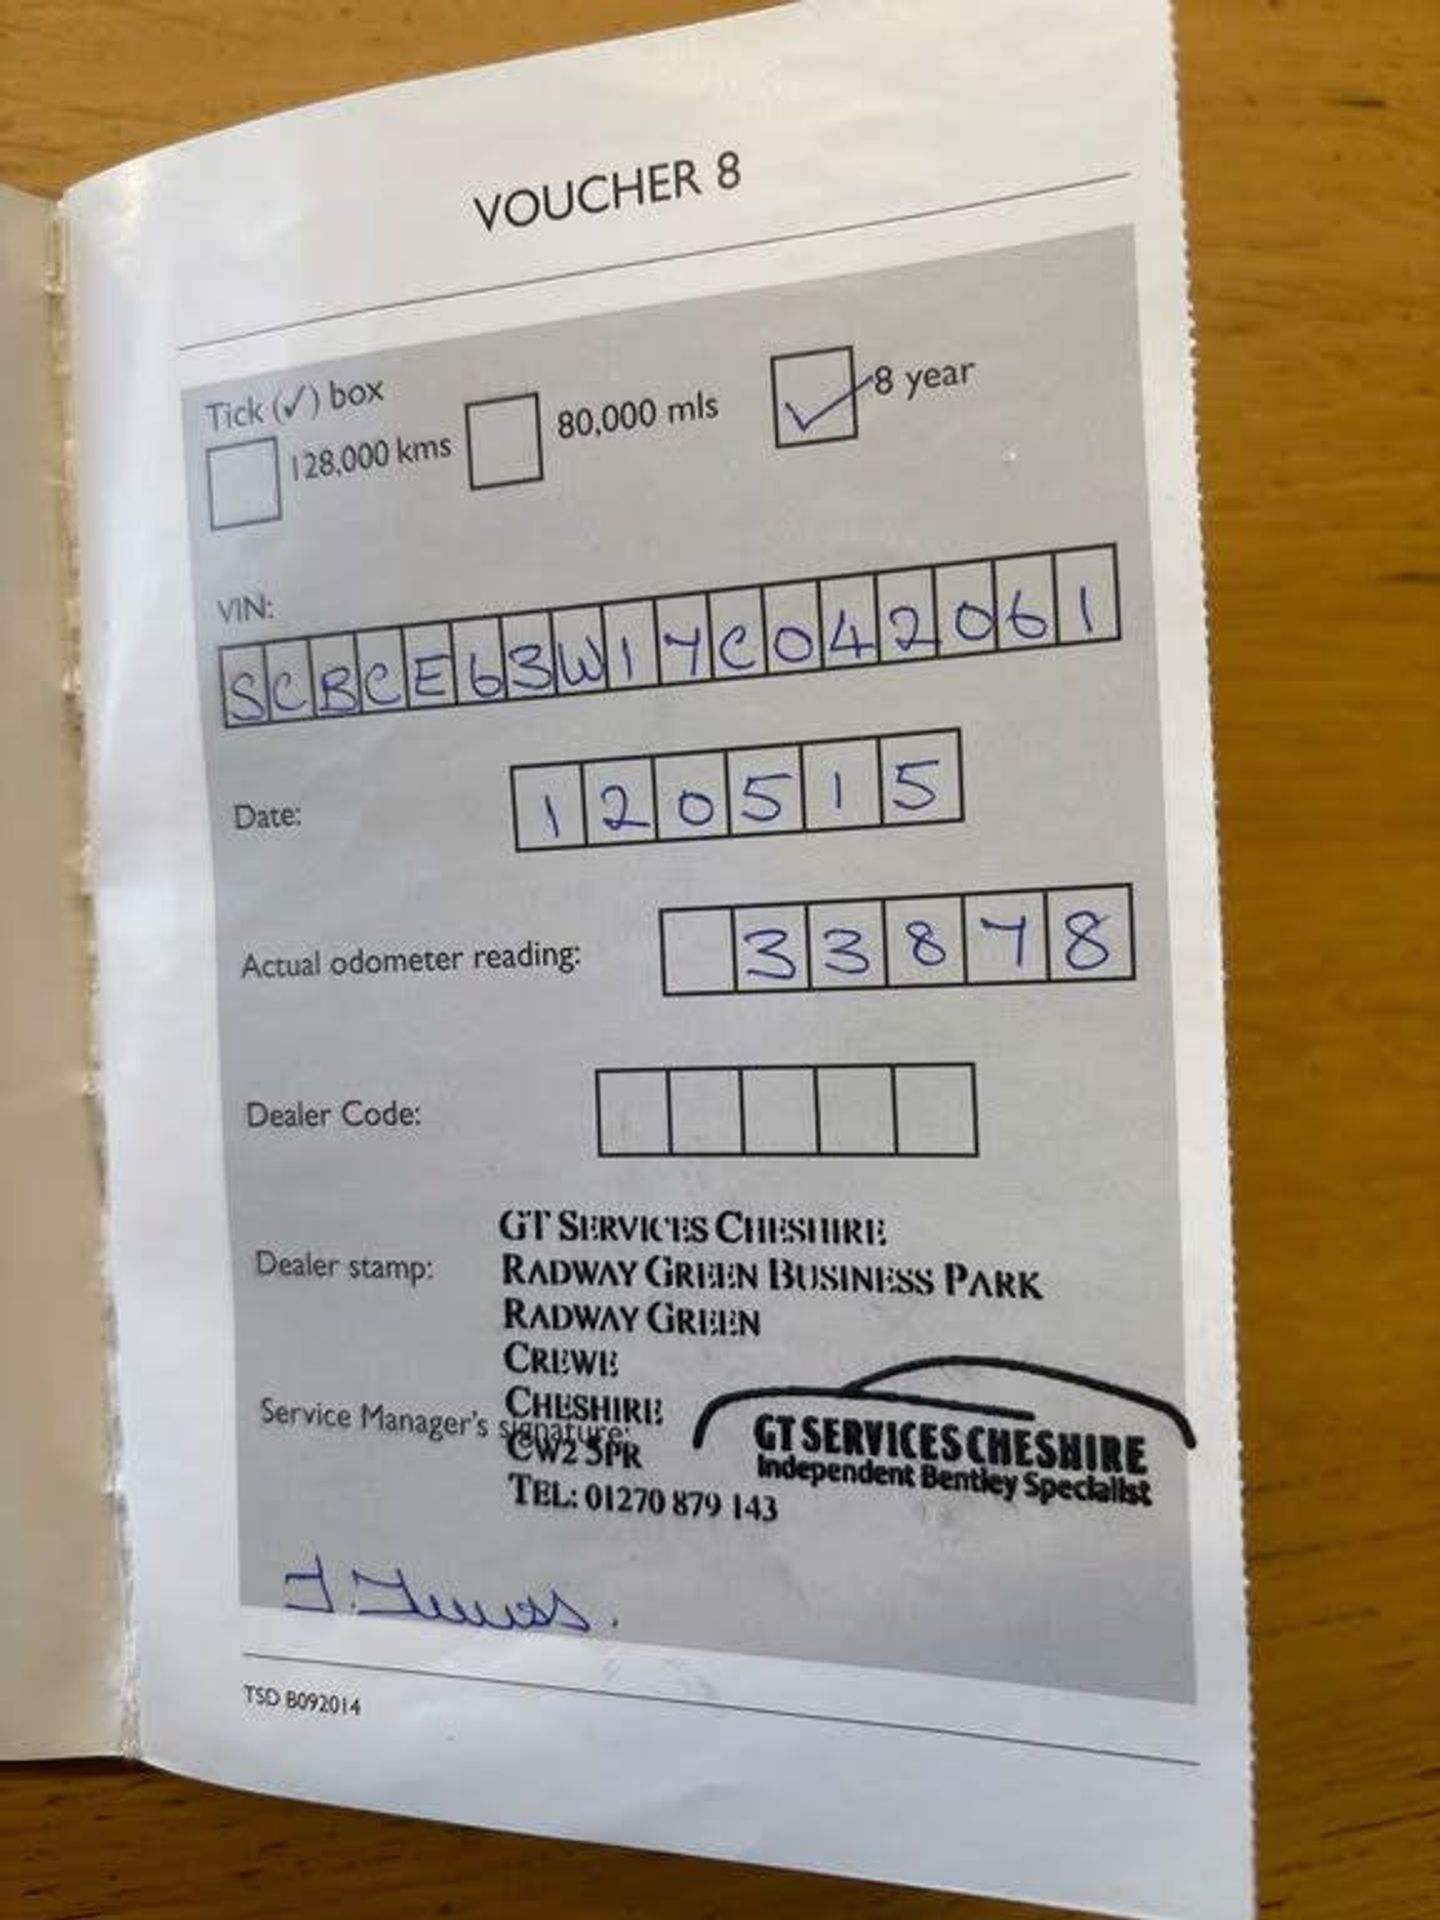 VOUCHER 8
Tick (✓) box
128,000 kms
80,000 mls
8 year
VIN:
SCBCE63W17C042061
Date:
120515
Actual odometer reading:
33878
Dealer Code:
Dealer stamp:
GT SERVICES CHESHIRE
RADWAY GREEN BUSINESS PARK
RADWAY GREEN
CREWE
CHESHIRE
CW2 5PR
TEL: 01270 879 143
GT SERVICES CHESHIRE
Independent Bentley Specialist
Service Manager's signature:
TSD B092014